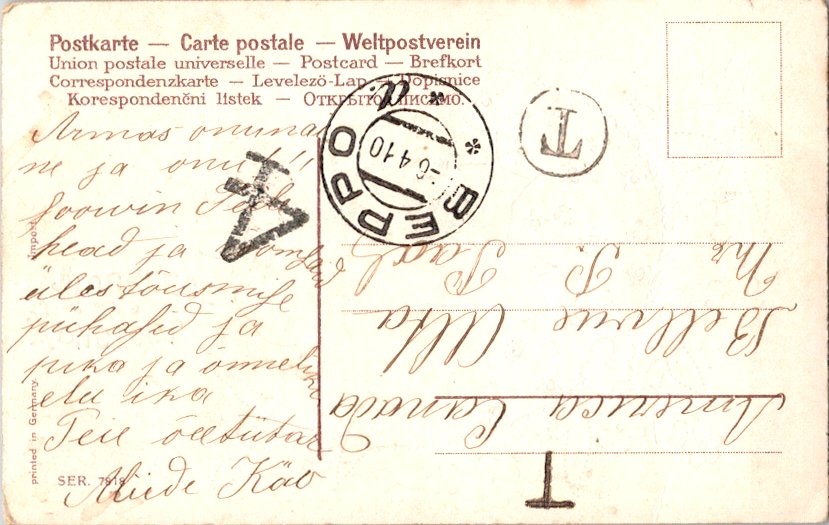 Postkarte — Carte postale — Weltpostverein
Union postale universelle — Postcard — Brefkort
Correspondenzkarte — Levelező-Lap — Dopisnice
Korespondenční lístek — Открытое письмо.
Armas onuna
ne ja onu!!
Soowin Teile
head ja
ülestõusmise
pühasid ja
pika ja õnnelikku
elu ika
Teie õetütar
Miide Käo
ВЕРРО
-6 4 10
T
T
Mr P. Saal
Bellvue Alta
America Canada
T
Import.
printed in Germany.
SER. 7818